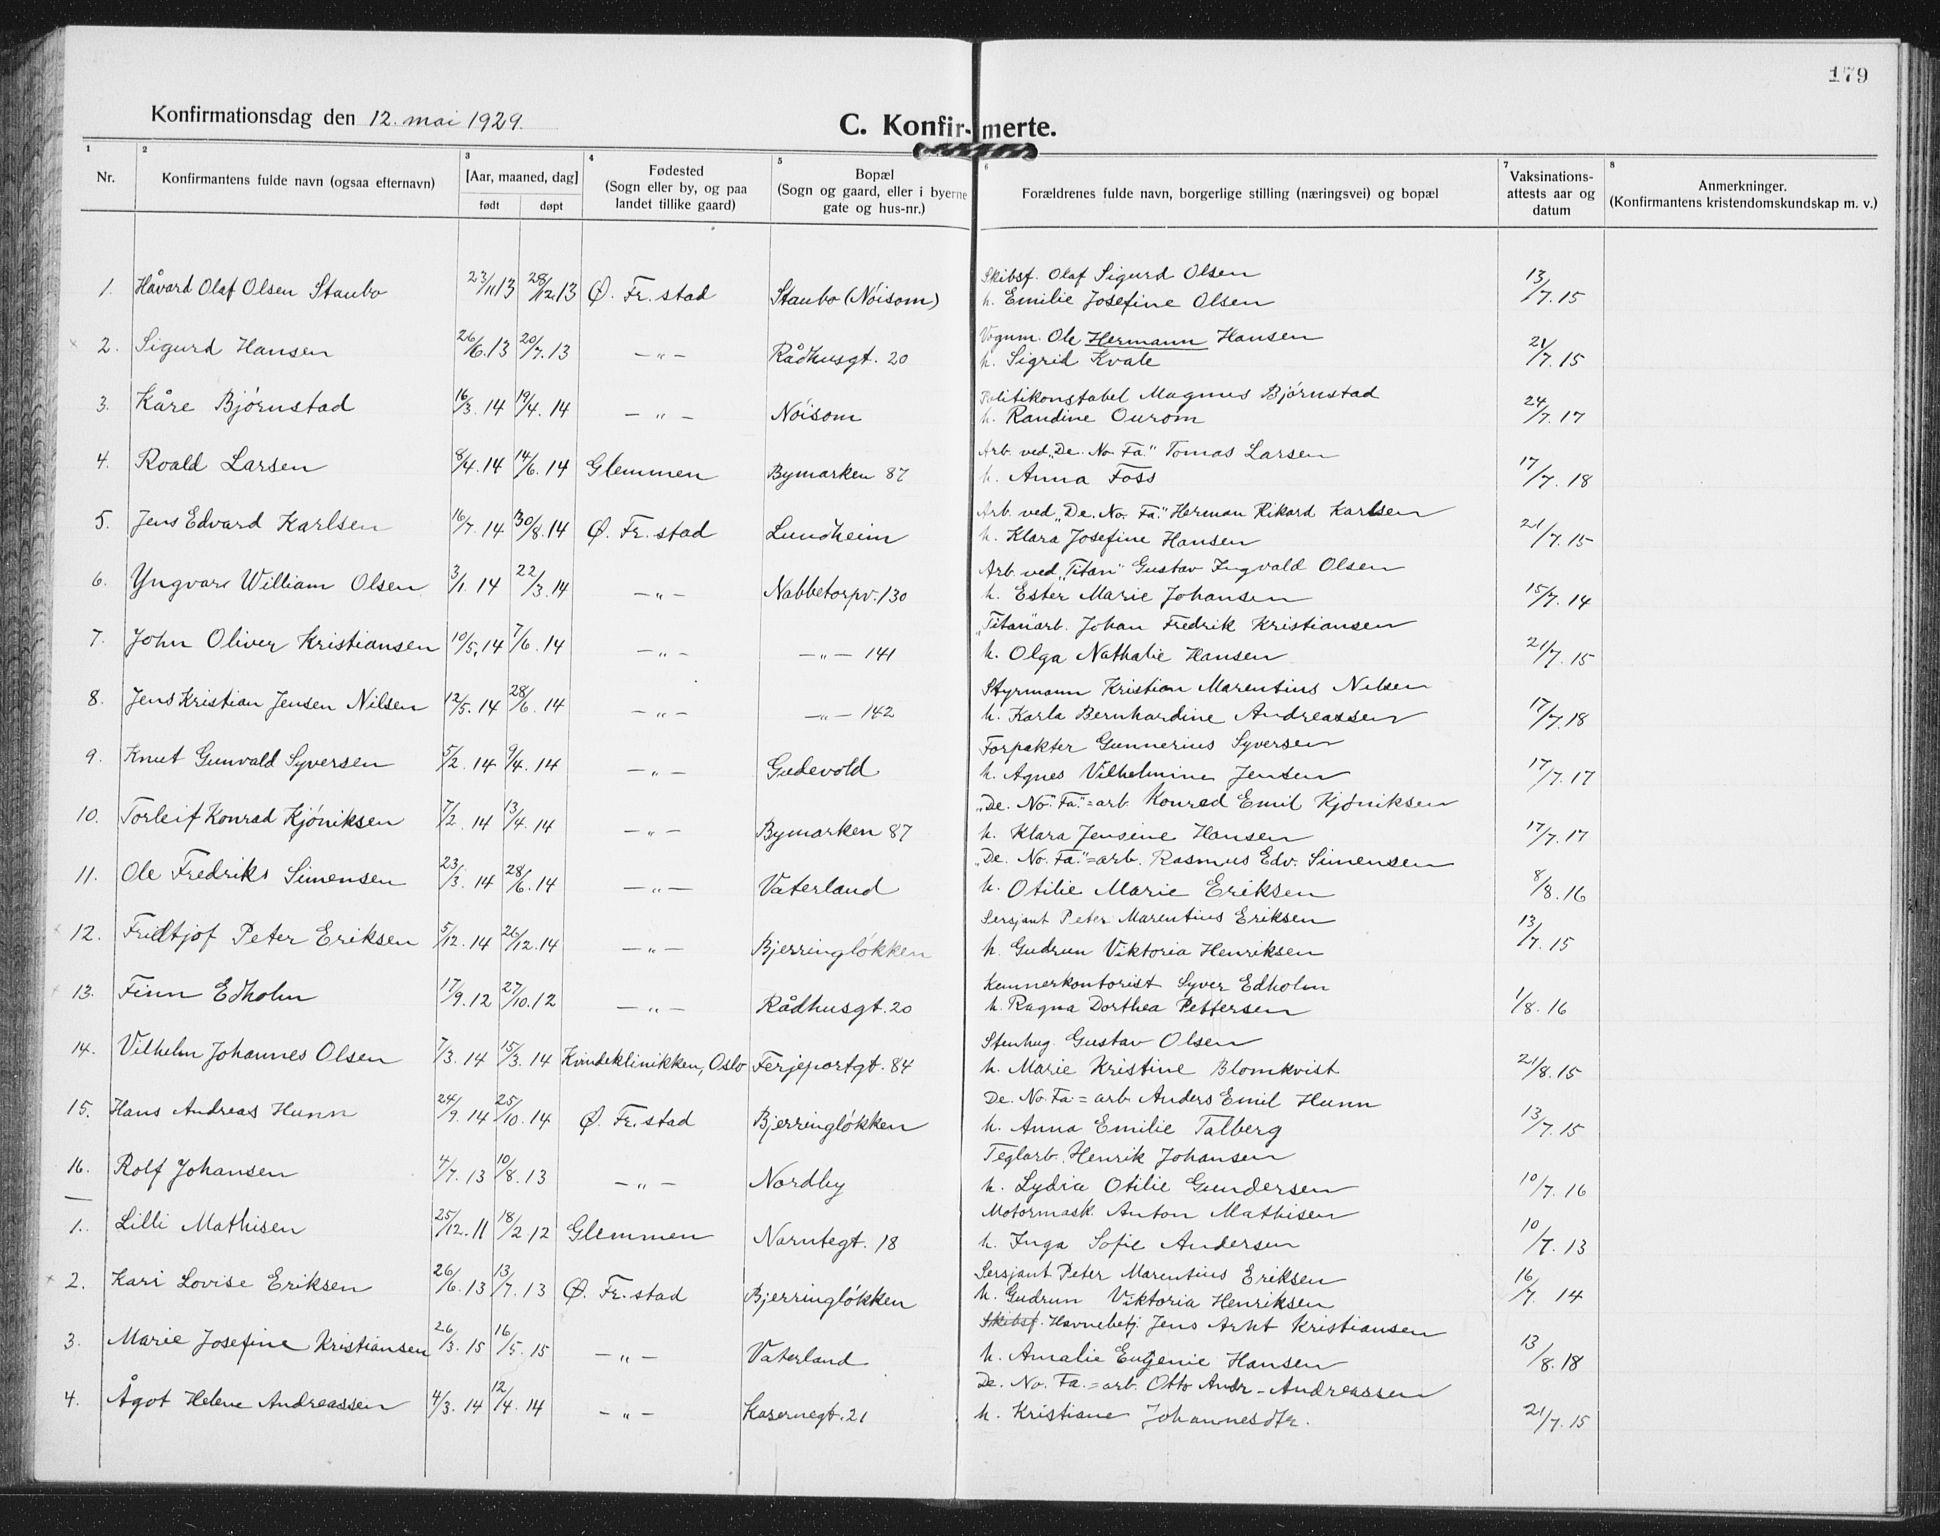 179
Konfirmationsdag den 12. mai 1929.
C. Konfirmerte.
1 2 3 4 5 6 7 8
Nr. Konfirmantens fulde navn (ogsaa efternavn) [Aar, maaned, dag] født døpt Fødested (Sogn eller by, og paa landet tillike gaard) Bopæl (Sogn og gaard, eller i byerne gate og hus-nr.) Forældrenes fulde navn, borgerlige stilling (næringsvei) og bopæl Vaksinations-attests aar og datum Anmerkninger. (Konfirmantens kristendomskundskap m. v.)
1. Håvard Olaf Olsen Staubo 23/11 13 28/12.13 Ø. Fr. stad Staubo (Nöisom) Skibsf. Olaf Sigurd Olsen
h. Emilie Josefine Olsen 13/7.15
2. Sigurd Hansen 26/6.13 20/7.13 -„- Rådhusgt. 20 Vognm. Ole Hermann Hansen
h. Sigrid Kvale 21/7.15
3. Kåre Björnstad 16/3.14 19/4.14 -„- Nöisom Politikonstabel Magnus Björnstad
h. Randine Ourom 24/7.17
4. Roald Larsen 8/4.14 14/6.14 Glemmen Bymarken 87 Arb. ved „De. No. Fa." Tomas Larsen
h. Anna Foss 17/7.18
5. Jens Edvard Karlsen 16/7.14 30/8.14 Ø. Fr. stad Lundheim Arb. ved „De. No. Fa." Herman Rikard Karlsen
h. Klara Josefine Hansen 21/7.15
6. Yngvar William Olsen 3/1.14 22/3.14 -„- Nabbetorpv. 130 Arb. ved „Titan" Gustav Ingvald Olsen
h. Ester Marie Johansen 15/7.14
7. John Oliver Kristiansen 10/5.14 7/6.14 -„- -„- 141 „Titan"arb. Johan Fredrik Kristiansen
h. Olga Nathalie Hansen 21/7.15
8. Jens Kristian Jensen Nilsen 12/5.14 28/6.14 -„- -„- 142 Styrmann Kristian Marentius Nilsen
h. Karla Bernhardine Andreassen 17/7.18
9. Knut Gunvald Syversen 5/2.14 9/4.14 -„- Gudevold Forpakter Gunnerius Syversen
h. Agnes Vilhelmine Jensen 17/7.17
10. Torleif Konrad Kjöniksen 7/2.14 13/4.14 -„- Bymarken 87 „De. No. Fa."=arb. Konrad Emil Kjöniksen
h. Klara Jensine Hansen 17/7.17
11. Ole Fredriks Simensen 23/3.14 28/6.14 -„- Vaterland „De. No. Fa."=arb. Rasmus Edv. Simensen
h. Otilie Marie Eriksen 8/8.16
12. Fridtjof Peter Eriksen 5/12.14 26/12.14 -„- Bjerringløkken Sersjant Peter Marentius Eriksen
h. Gudrun Viktoria Henriksen 13/7.15
13. Finn Edholm 17/9.12 27/10.12 -„- Rådhusgt. 20 Kemnerkontorist Syver Edholm
h. Ragna Dorthea Pettersen 1/8.16
14. Vilhelm Johannes Olsen 7/3.14 15/3.14 Kvindeklinikken, Oslo Ferjeportgt. 84 Stenhug. Gustav Olsen
h. Marie Kristine Blomkvist 21/8.15
15. Hans Andreas Hunn 24/9.14 25/10.14 Ø. Fr. stad Bjerringløkken De. No. Fa.=arb. Anders Emil Hunn
h. Anna Emilie Talberg 13/7.15
16. Rolf Johansen 4/7.13 10/8.13 -„- Nordby Teglarb. Henrik Johansen
h. Lydia Otilie Gundersen 10/7.16
1. Lilli Mathisen 25/12.11 18/2.12 Glemmen Narntegt. 18 Motormask. Anton Mathisen
h. Inga Sofie Andersen 10/7.13
2. Kari Lovise Eriksen 26/6.13 13/7.13 Ø. Fr. stad Bjerringløkken Sersjant Peter Marentius Eriksen
h. Gudrun Viktoria Henriksen 16/7.14
3. Marie Josefine Kristiansen 26/3.15 16/5.15 -„- Vaterland Skibsf. Havnebetj. Jens Arnt Kristiansen
h. Amalie Eugenie Hansen 13/8.18
4. Ågot Helene Andreassen 4/3.14 12/4.14 -„- Kasernegt. 21 De. No. Fa.=arb. Otto Andr. Andreassen
h. Kristiane Johannesdtr. 21/7.15